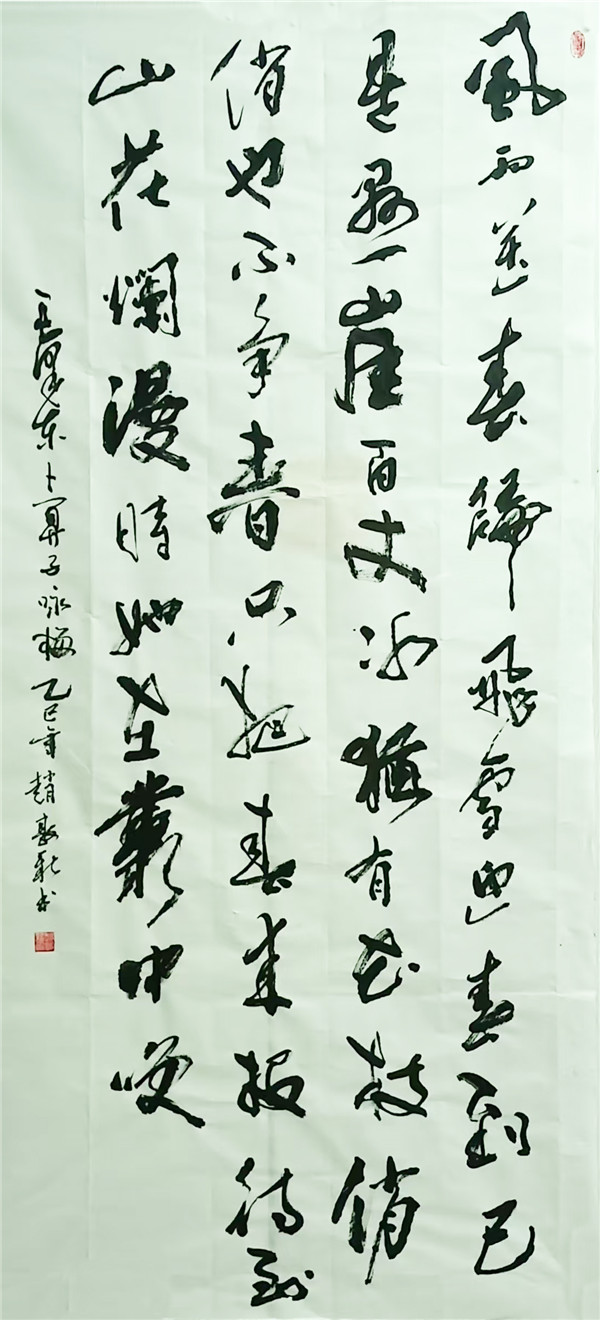 風雨送春歸飛雪迎春到已
是懸崖百丈冰猶有花枝俏
俏也不争春只把春来报待到
山花爛漫時她在叢中咲
毛澤東卜算子咏梅 乙巳年 趙 书